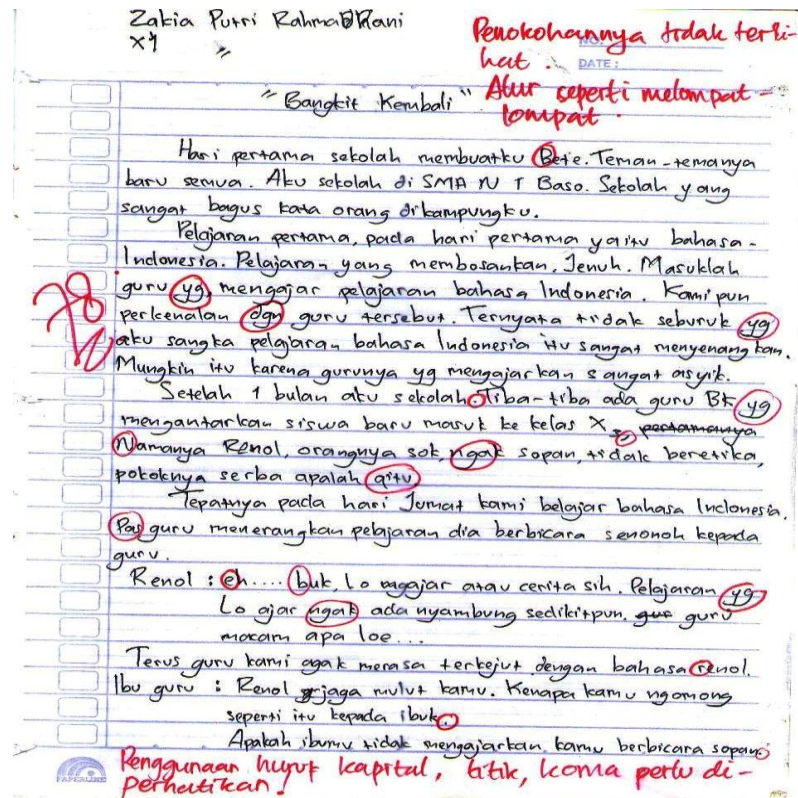 Zakia Putri Rahma Rani
X4 "
Penokohannya tidak terli-
hat.
NO:
DATE:
Alur seperti melompat-
lompat.
"Bangkit Kembali"
Hari pertama sekolah membuatku Bete. Teman-temanya
baru semua. Aku sekolah di SMA N 1 Baso. Sekolah yang
sangat bagus kata orang dikampungku.
Pelajaran pertama, pada hari pertama yaitu bahasa-
Indonesia. Pelajaran yang membosankan, Jenuh. Masuklah
guru yg, mengajar pelajaran bahasa Indonesia. Kami pun
perkenalan dgn guru tersebut. Ternyata tidak seburuk yg
78
aku sangka pelajaran bahasa Indonesia itu sangat menyenangkan.
Mungkin itu karena gurunya yg mengajarkan sangat asyik.
Setelah 1 bulan aku sekolah. Tiba-tiba ada guru BK yg
mengantarkan siswa baru masuk ke kelas X pertamanya
Namanya Renol, orangnya sok, ngak sopan, tidak beretika,
pokoknya serba apalah gitu
Tepatnya pada hari Jumat kami belajar bahasa Indonesia.
Pas guru menerangkan pelajaran dia berbicara senonoh kepada
guru.
Renol : eh.... buk, Lo ngajar atau cerita sih. Pelajaran yg
Lo ajar ngak ada nyambung sedikitpun, gur guru
macam apa loe...
Terus guru kami agak merasa terkejut dengan bahasa renol.
Ibu guru : Renol jaga mulut kamu. Kenapa kamu ngomong
seperti itu kepada ibuk.
Apakah ibumu tidak mengajarkan kamu berbicara sopan.
PAPERLINE
Penggunaan huruf kapital, titik, koma perlu di-
perhatikan!